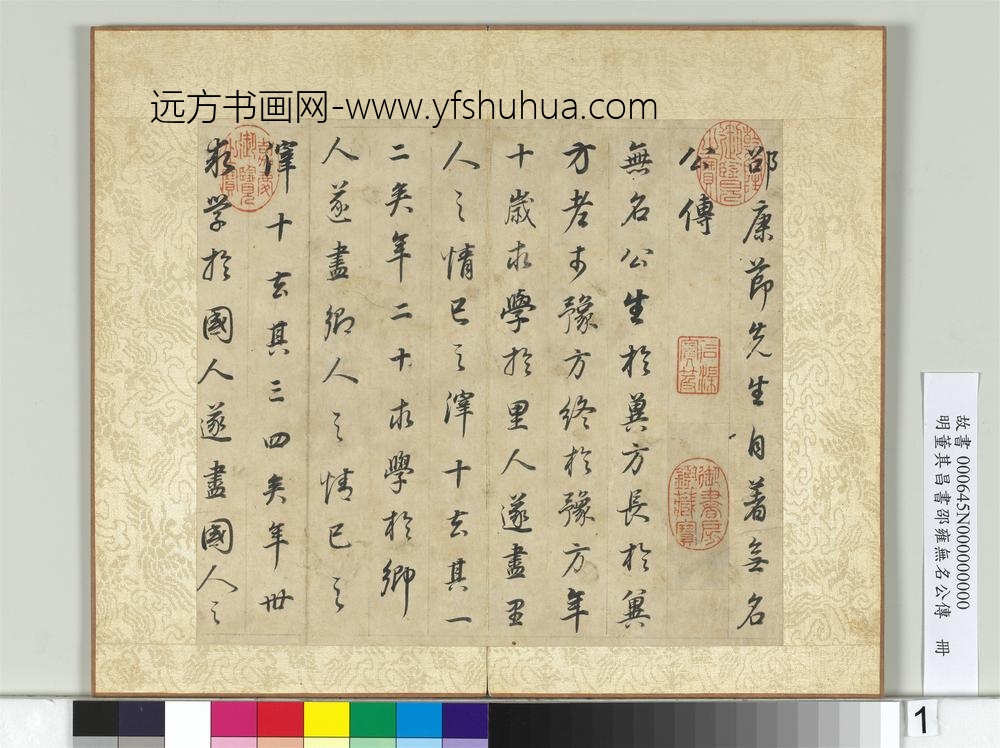 远方书画网-www.yfshuhua.com
邵康節先生自著無名
公傳
無名公生於冀方長於冀
方老於豫方終於豫方年
十歲求學於里人遂盡里
人之情己之滓十去其一
二矣年二十求學於鄉
人遂盡鄉人之情己之
滓十去其三四矣年卅
求学於國人遂盡國人之
乾隆御覽之寶
石渠寶笈
御書房鑑藏寶
嘉慶御覽之寶
故書 000645N000000000
明董其昌書邵雍無名公傳 冊
1